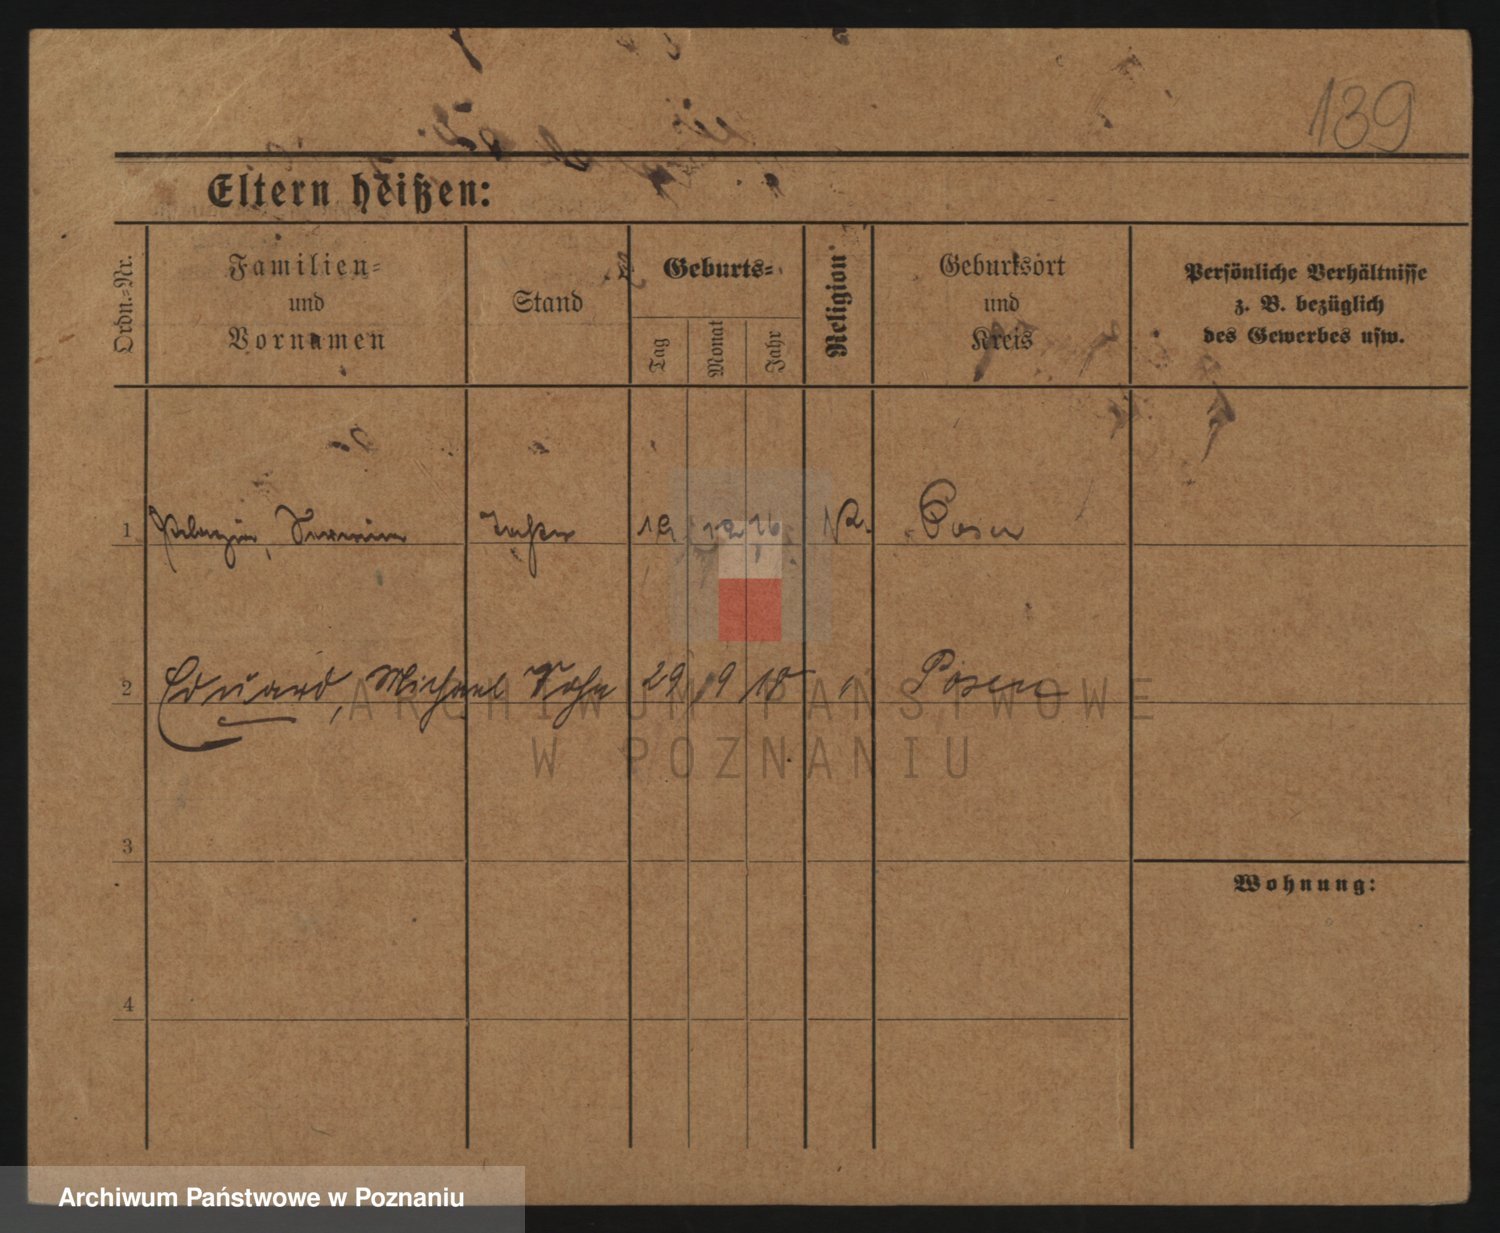 139
Eltern heißen:
Ordn.-Nr.
Familien-
und
Vornamen
Stand
Geburts-
Tag
Monat
Jahr
Religion
Geburtsort
und
Kreis
Persönliche Verhältnisse
z. B. bezüglich
des Gewerbes usw.
1 Pelagia, Tochter 19 12 16 K. Posen
2 Eduard, Michael Sohn 29 9 18 " Posen
3
Wohnung:
4
ARCHIWUM PAŃSTWOWE
W POZNANIU
Archiwum Państwowe w Poznaniu